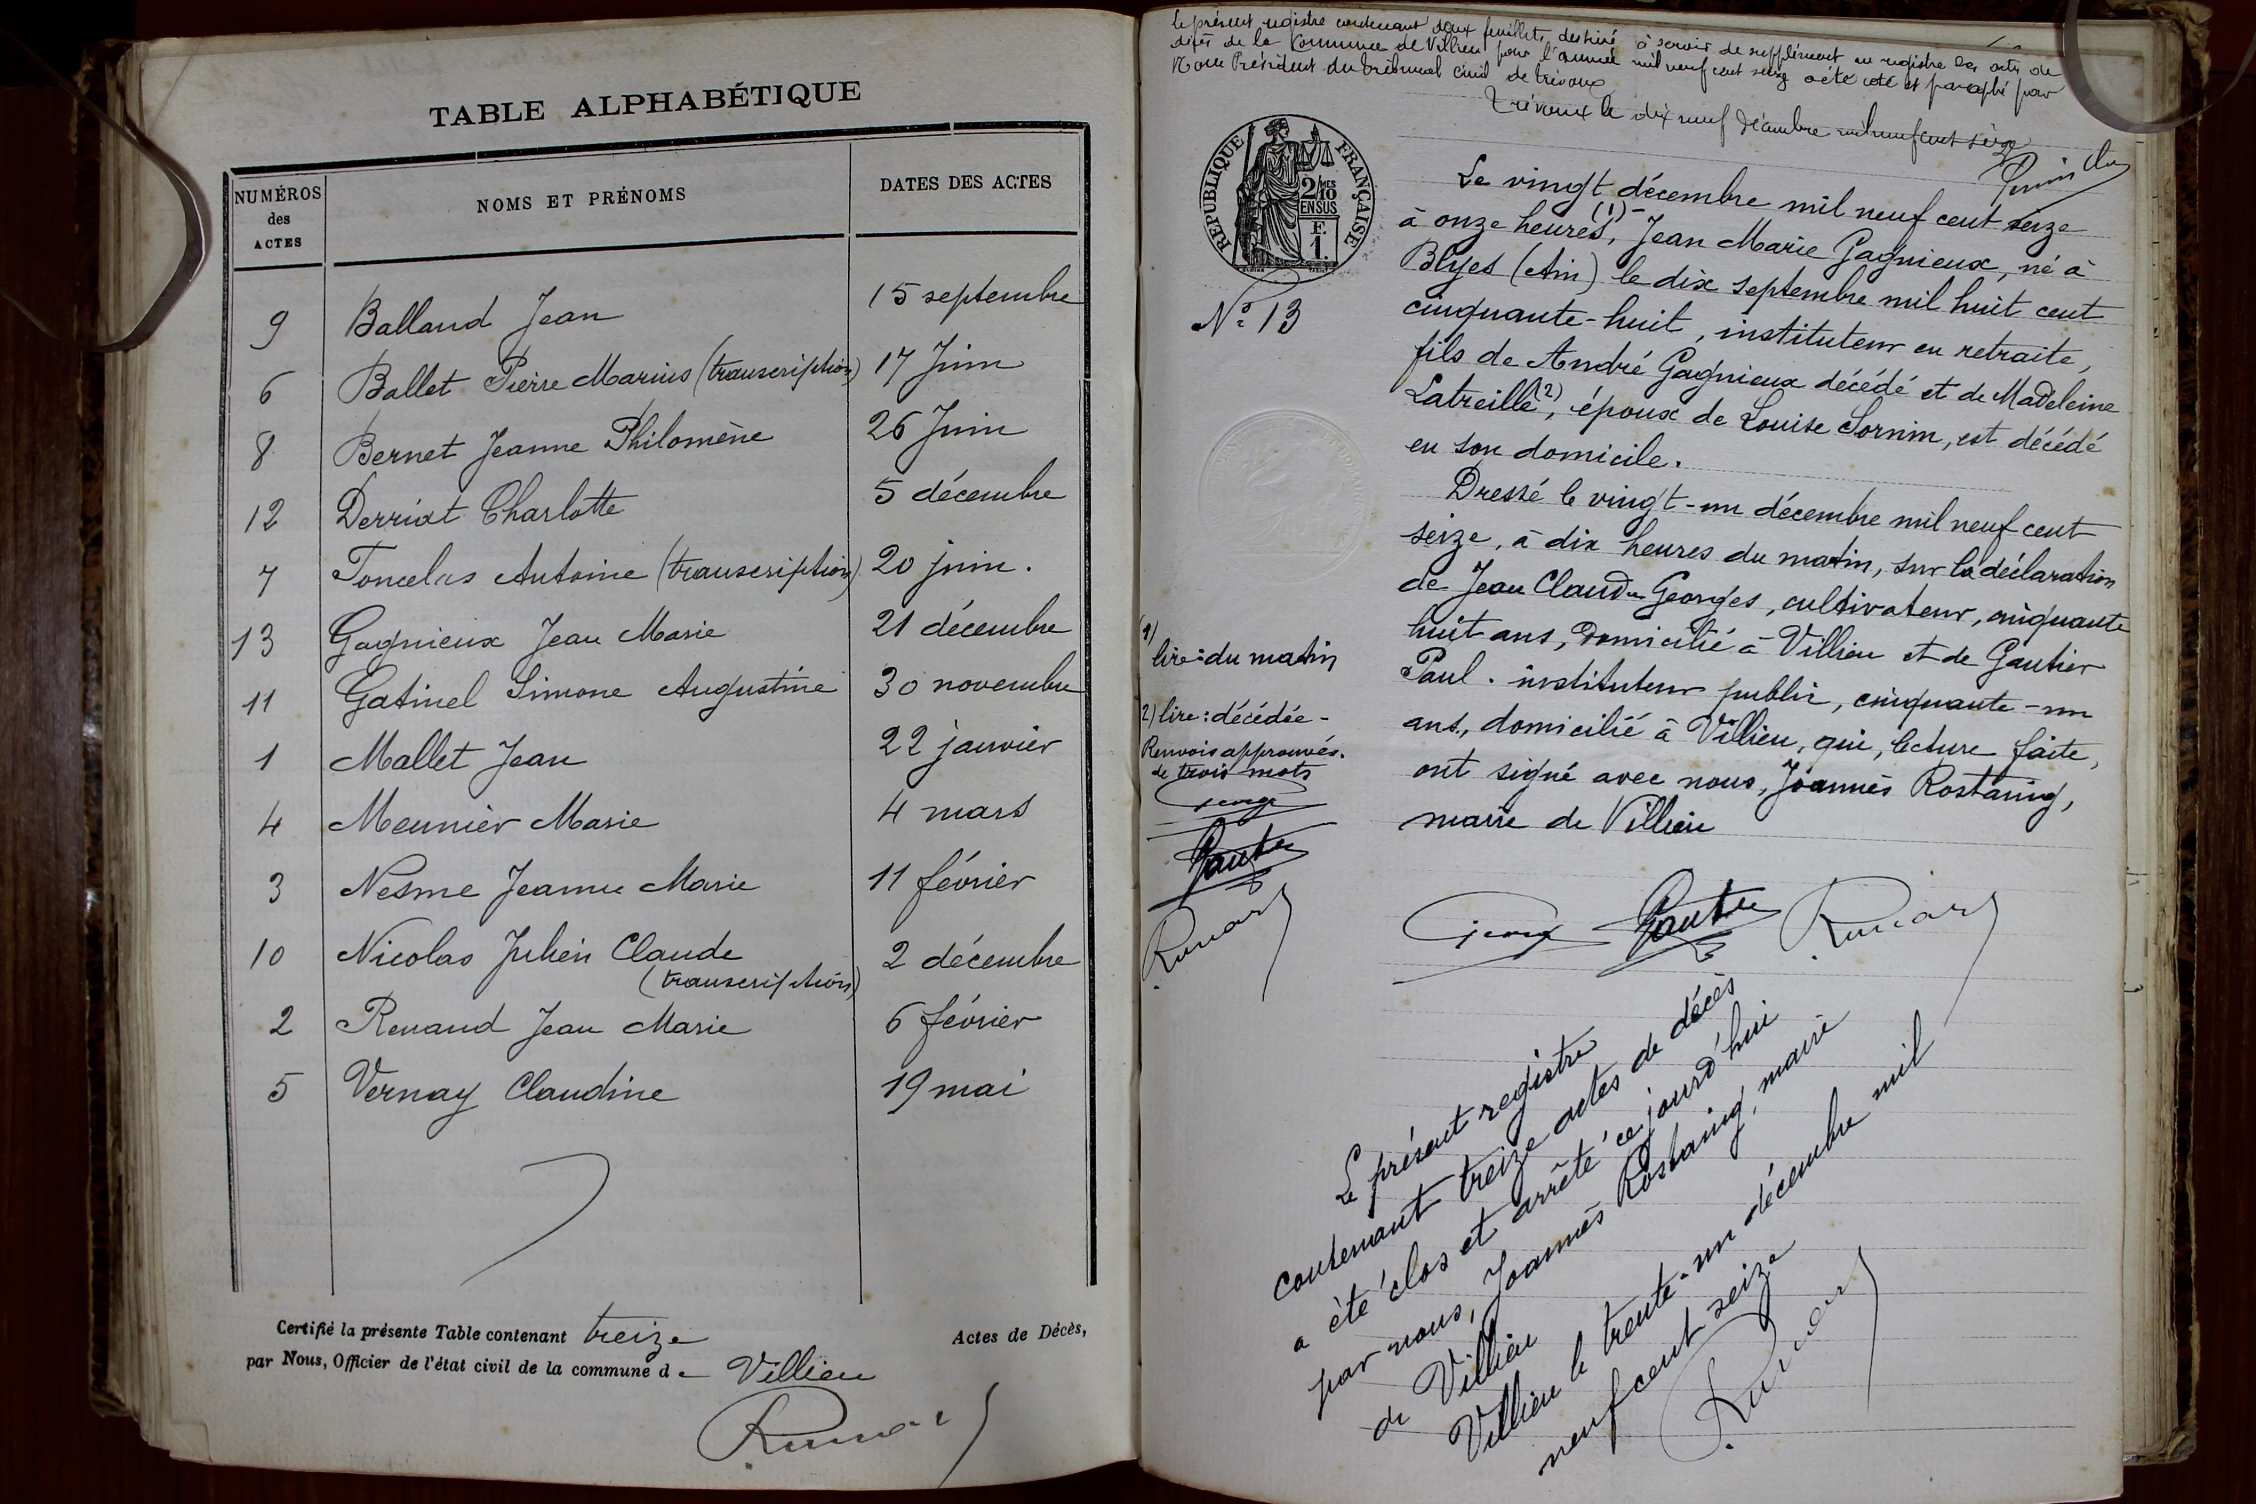 TABLE ALPHABÉTIQUE
NUMÉROS des ACTES
NOMS ET PRÉNOMS
DATES DES ACTES
9 Balland Jean 15 septembre
6 Ballet Pierre Marius (transcription) 17 Juin
8 Bernet Jeanne Philomène 26 Juin
12 Derriat Charlotte 5 décembre
7 Foncelas Antoine (transcription) 20 juin.
13 Gagnieux Jean Marie 21 décembre
11 Gatinel Simone Augustine 30 novembre
1 Mallet Jean 22 janvier
4 Meunier Marie 4 mars
3 Nesme Jeanne Marie 11 février
10 Nicolas Julien Claude 2 décembre
(transcription)
2 Renaud Jean Marie 6 février
5 Vernay Claudine 19 mai
Certifié la présente Table contenant treize Actes de Décès,
par Nous, Officier de l'état civil de la commune de Villieu
Le présent registre contenant deux feuillets destiné à servir de supplément au registre des actes de
décès de la Commune de Villieu pour l'année mil neuf cent seize a été coté et paraphé par
Nous Président du tribunal civil de Trévoux
Trévoux le dix neuf décembre mil neuf cent seize
RÉPUBLIQUE FRANÇAISE
2/10 MES
EN SUS
F.
1.
Nº 13
Le vingt décembre mil neuf cent seize
à onze heures (1), Jean Marie Gagnieux, né à
Blyes (Ain) le dix septembre mil huit cent
cinquante-huit, instituteur en retraite,
fils de André Gagnieux décédé et de Madeleine
Latreille (2), époux de Louise Sornin, est décédé
en son domicile.
Dressé le vingt-un décembre mil neuf cent
seize, à dix heures du matin, sur la déclaration
de Jean Claude Georges, cultivateur, cinquante
huit ans, domicilié à Villieu et de Gautier
Paul. instituteur public, cinquante-un
ans, domicilié à Villieu, qui, lecture faite,
ont signé avec nous, Joannès Rostaing,
maire de Villieu
1)
lire: du matin
2) lire: décédée -
Renvois approuvés.
de trois mots
Le présent registre
contenant treize actes de décès
a été clos et arrêté ce jourd'hui
par nous, Joannès Rostaing, maire
de Villieu
Villieu le trente-un décembre mil
neuf cent seize